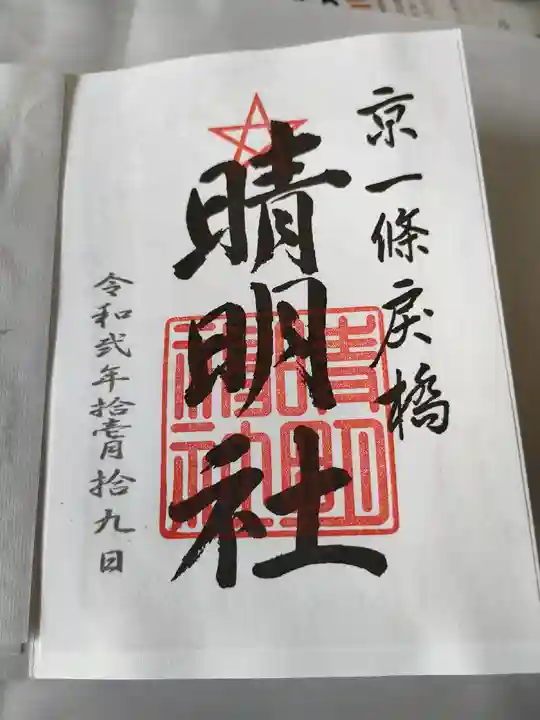 京一條戻橋
晴明社
晴明神社
令和弐年拾壹月拾九日